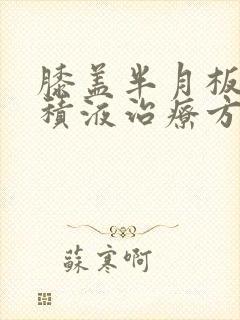 膝盖半月板
積液治療方
蘇寒啊